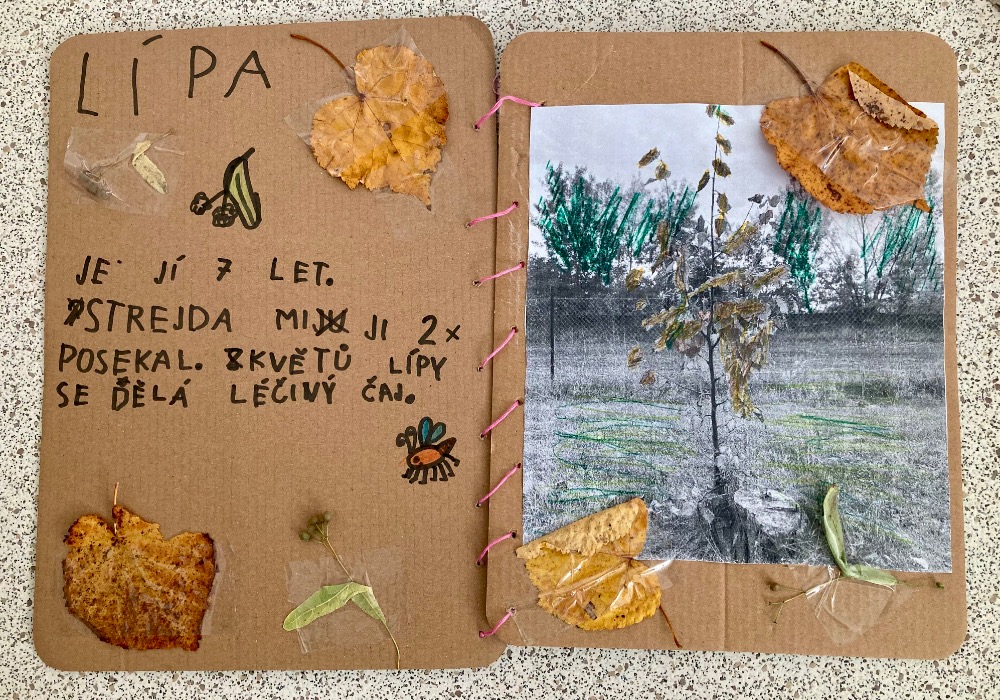 LÍPA
JE JÍ 7 LET.
STREJDA MI JI 2x
POSEKAL. Z KVĚTŮ LÍPY
SE DĚLÁ LÉČIVÝ ČAJ.